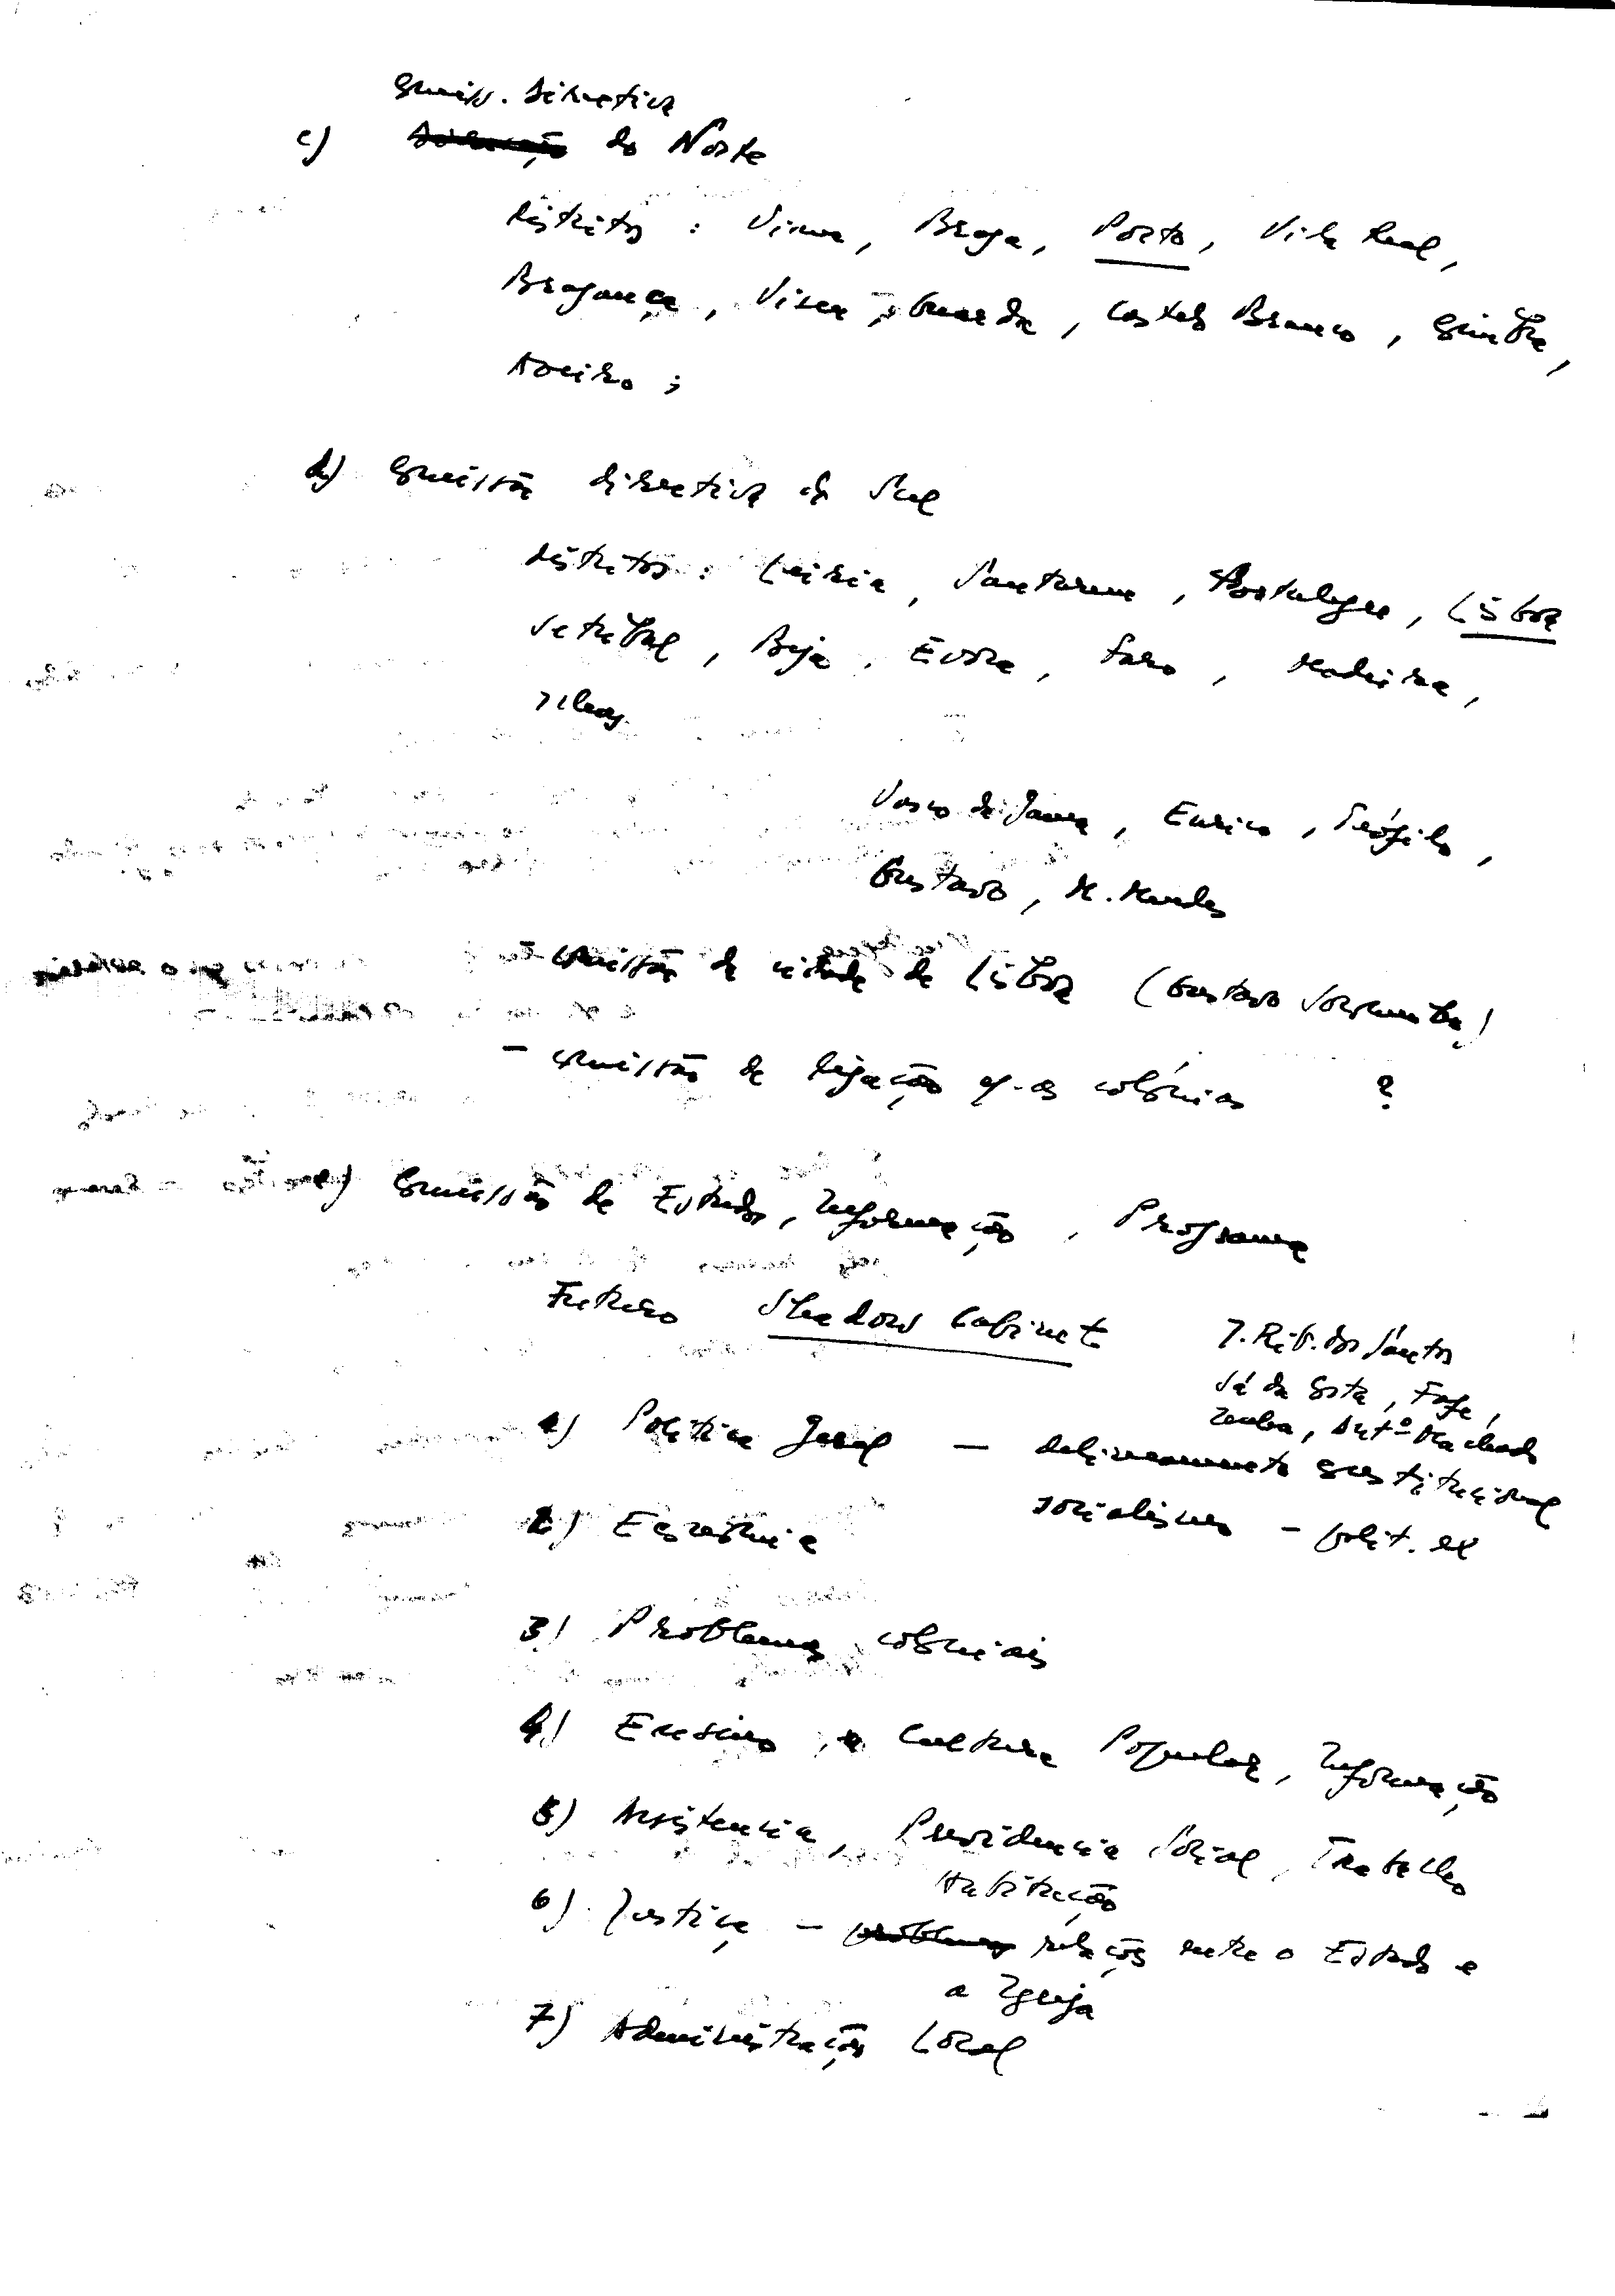 Comiss. Directiva
c) do Norte
distritos : Viana, Braga, Porto, Vila Real,
Bragança, Viseu, Guarda, Castelo Branco, Coimbra,
Aveiro ;
d) Comissão directiva do Sul
distritos : Leiria, Santarem, Portalegre, Lisboa
Setubal, Beja, Evora, Faro, Madeira,
Ilhas.
Vasco da Gama, Eurico, Teófilo,
Gustavo, M. Mendes
- comissão da cidade de Lisboa (Gustavo Soromenho)
- comissão de ligação c/ as colónias ?
e) Comissão de Estudos, Informação, Programa
Futuro Shadow Cabinet
J. Rib. dos Santos
Sá da Costa, Fafe,
Zenha, Antº Machado
1) Politica Geral — delineamento constitucional
socialismo - polit. ex
2) Economia
3) Problemas coloniais
4) Ensino, e Cultura Popular, Informação
5) Assistencia, Previdencia Social, Trabalho
Habitação
6) Justiça - relações entre o Estado e
a Igreja
7) Administração Local